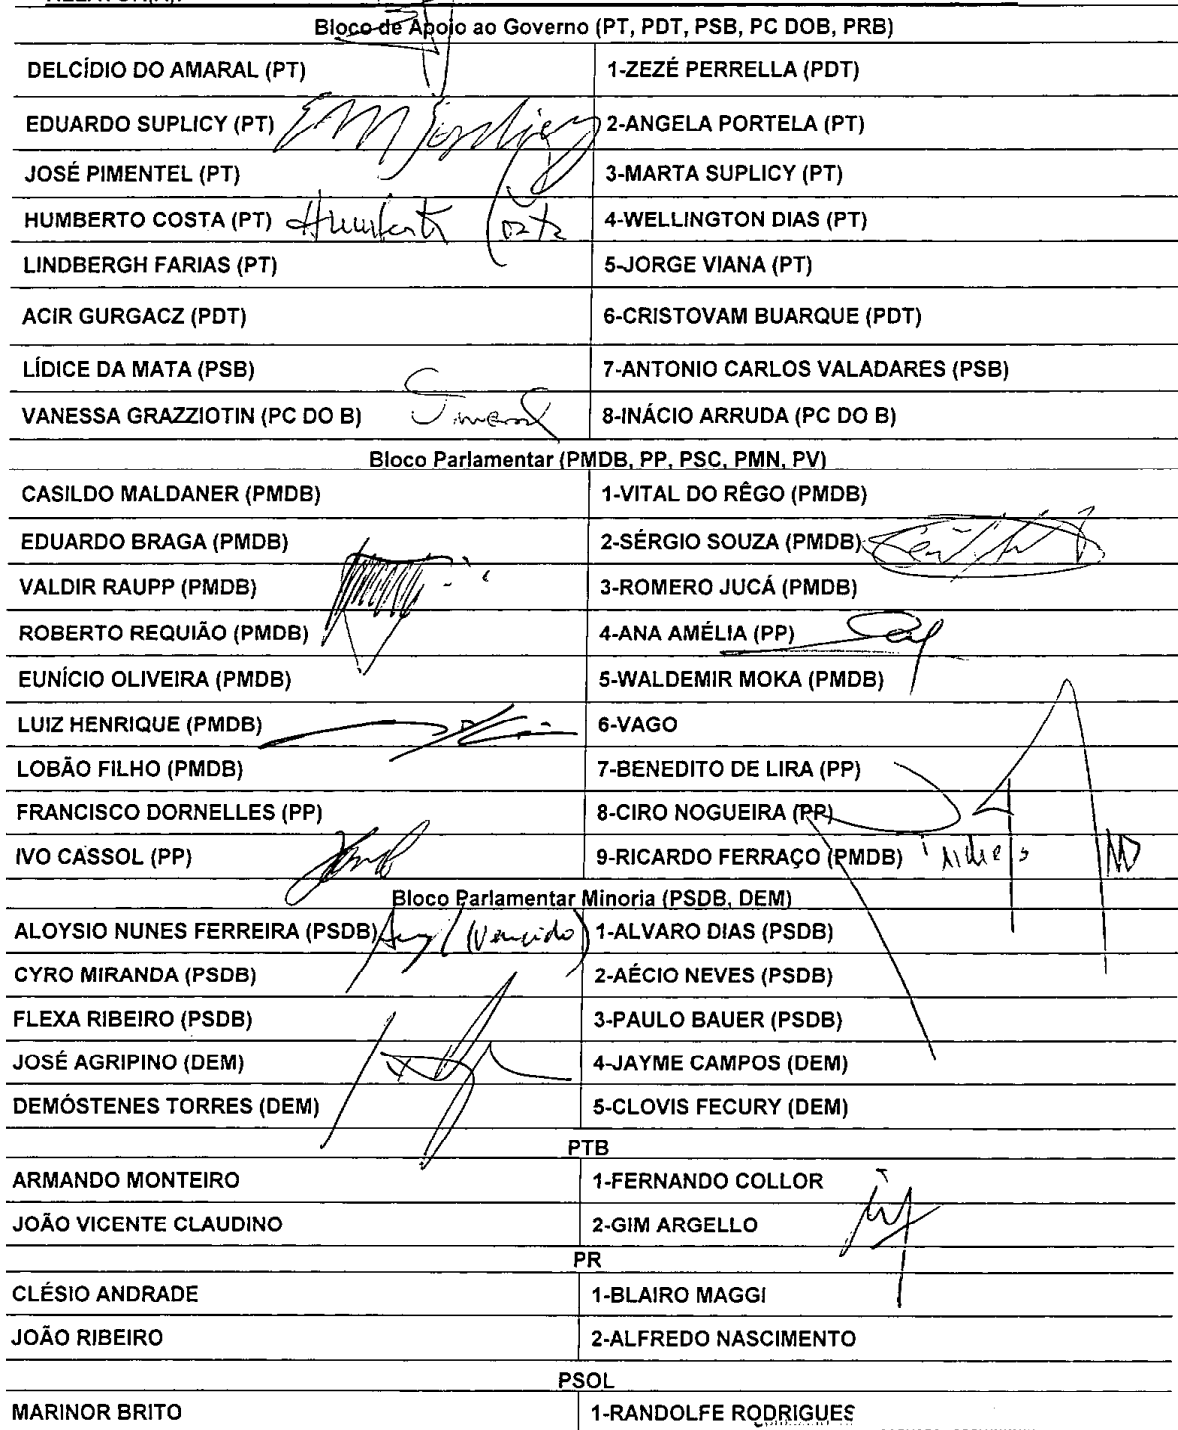 Bloco de Apoio ao Governo (PT, PDT, PSB, PC DOB, PRB)
DELCÍDIO DO AMARAL (PT) 1-ZEZÉ PERRELLA (PDT)
EDUARDO SUPLICY (PT) 2-ANGELA PORTELA (PT)
JOSÉ PIMENTEL (PT) 3-MARTA SUPLICY (PT)
HUMBERTO COSTA (PT) Humberto Costa 4-WELLINGTON DIAS (PT)
LINDBERGH FARIAS (PT) 5-JORGE VIANA (PT)
ACIR GURGACZ (PDT) 6-CRISTOVAM BUARQUE (PDT)
LÍDICE DA MATA (PSB) 7-ANTONIO CARLOS VALADARES (PSB)
VANESSA GRAZZIOTIN (PC DO B) 8-INÁCIO ARRUDA (PC DO B)
Bloco Parlamentar (PMDB, PP, PSC, PMN, PV)
CASILDO MALDANER (PMDB) 1-VITAL DO RÊGO (PMDB)
EDUARDO BRAGA (PMDB) 2-SÉRGIO SOUZA (PMDB)
VALDIR RAUPP (PMDB) 3-ROMERO JUCÁ (PMDB)
ROBERTO REQUIÃO (PMDB) 4-ANA AMÉLIA (PP)
EUNÍCIO OLIVEIRA (PMDB) 5-WALDEMIR MOKA (PMDB)
LUIZ HENRIQUE (PMDB) 6-VAGO
LOBÃO FILHO (PMDB) 7-BENEDITO DE LIRA (PP)
FRANCISCO DORNELLES (PP) 8-CIRO NOGUEIRA (PP)
IVO CASSOL (PP) 9-RICARDO FERRAÇO (PMDB)
Bloco Parlamentar Minoria (PSDB, DEM)
ALOYSIO NUNES FERREIRA (PSDB) (Vencido) 1-ALVARO DIAS (PSDB)
CYRO MIRANDA (PSDB) 2-AÉCIO NEVES (PSDB)
FLEXA RIBEIRO (PSDB) 3-PAULO BAUER (PSDB)
JOSÉ AGRIPINO (DEM) 4-JAYME CAMPOS (DEM)
DEMÓSTENES TORRES (DEM) 5-CLOVIS FECURY (DEM)
PTB
ARMANDO MONTEIRO 1-FERNANDO COLLOR
JOÃO VICENTE CLAUDINO 2-GIM ARGELLO
PR
CLÉSIO ANDRADE 1-BLAIRO MAGGI
JOÃO RIBEIRO 2-ALFREDO NASCIMENTO
PSOL
MARINOR BRITO 1-RANDOLFE RODRIGUES